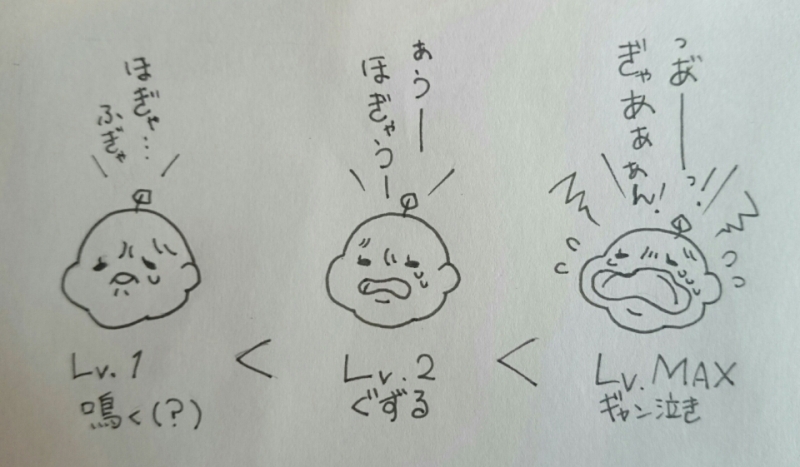 ほぎゃ…
ぶぎゃ
Lv.1
鳴く(?)
<
ぁぅー
ほぎゃぅー
Lv.2
ぐずる
<
っあ゛ーっ!
ぎゃあぁぁん!
Lv.MAX
ギャン泣き